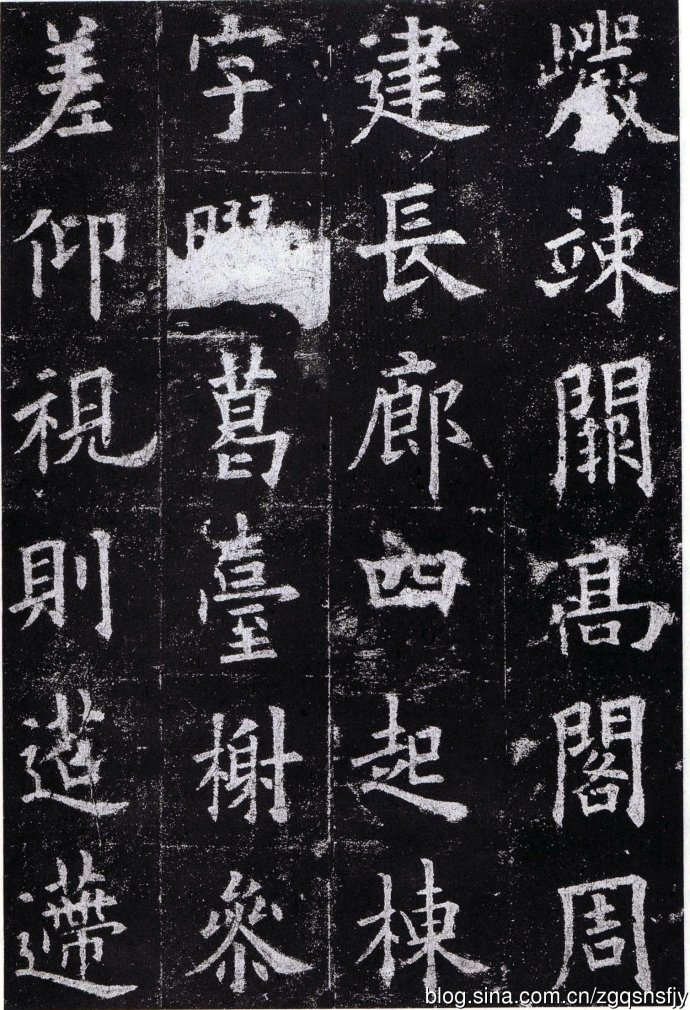 巖竦闕高閣周
建長廊四起棟
宇葛臺榭參
差仰視則迢遰
blog.sina.com.cn/zgqsnsfjy